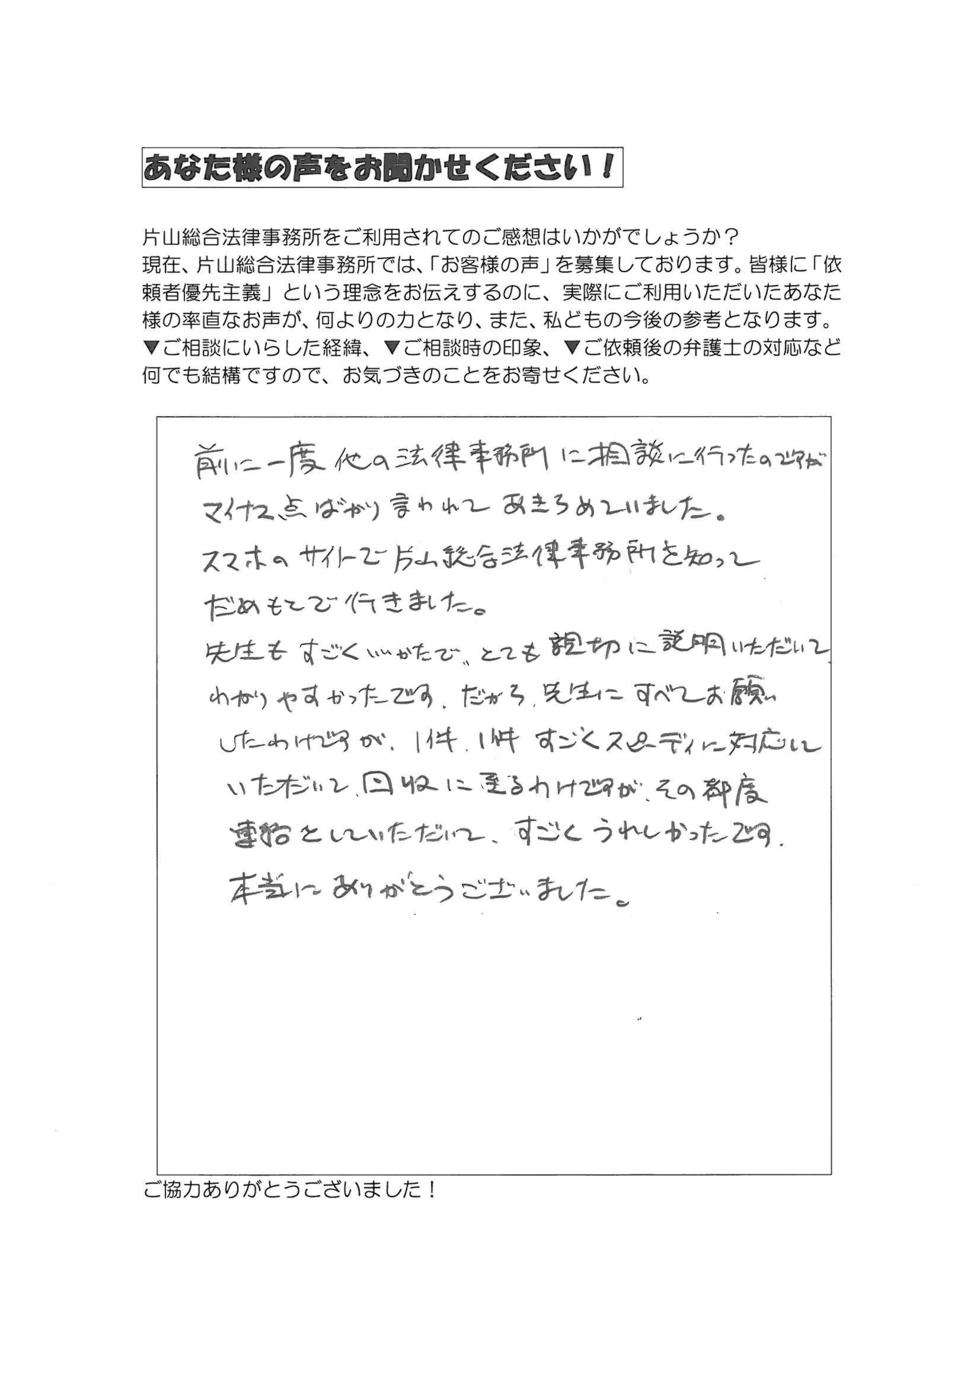 あなた様の声をお聞かせください！
片山総合法律事務所をご利用されてのご感想はいかがでしょうか？
現在、片山総合法律事務所では、「お客様の声」を募集しております。皆様に「依
頼者優先主義」という理念をお伝えするのに、実際にご利用いただいたあなた
様の率直なお声が、何よりの力となり、また、私どもの今後の参考となります。
▼ご相談にいらした経緯、▼ご相談時の印象、▼ご依頼後の弁護士の対応など
何でも結構ですので、お気づきのことをお寄せください。
前に一度他の法律事務所に相談に行ったのですが
マイナス点ばかり言われてあきらめていました。
スマホのサイトで片山総合法律事務所を知って
だめもとで行きました。
先生もすごくいいかたで、とても親切に説明いただいて
わかりやすかったです。だから、先生にすべてお願い
したわけですが、1件、1件すごくスピーディに対応して
いただいて、回収に至るわけですが、その都度
連絡をしていただいて、すごくうれしかったです。
本当にありがとうございました。
ご協力ありがとうございました！